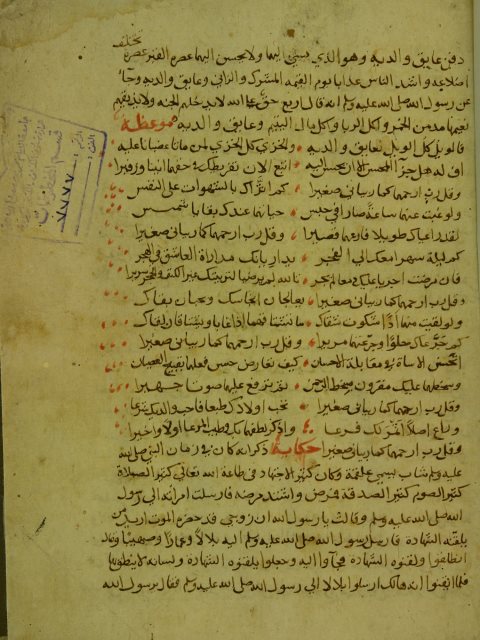 دفن عاق والديه وهو الذي يسئ اليهما ولا يحسن اليهما عصره القبر عصرة تختلف
اضلاعه واشد الناس عذابا يوم القيمة المشرك والزاني وعاق والديه وجاء
عن رسول الله صلى الله عليه وسلم انه قال اربع حق على الله لا يدخلهم الجنة ولا يذيقهم
نعيمها مدمن الخمر واكل الربا واكل مال اليتيم وعاق والديه موعظة
فالويل كل الويل لعاق والديه والخزي كل الخزي لمن ماتا غضبانا عليه
اف له هل جزا المحسن الا ان يحسن اليه اتبع الان تفريطك في حقهما انينا وزفيرا
وقل رب ارحمهما كما ربياني صغيرا كم اثراك بالشهوات على النفس
ولو غبت عنهما ساعة صارا في حبس حياتهما عندك بقايا شمس
لقد راعياك طويلا فارعهما قصيرا وقل رب ارحمهما كما ربياني صغيرا
كم ليلة سهرا معك الى الفجر يداريانك مداراة العاشق في الهجر
فان مرضت اجريا عليك دمعا لم يجر تالله لم يرضيا لتربيتك غير الكف والحجر سريرا
وقل رب ارحمهما كما ربياني صغيرا يعالجان انجاسك ويحبان بقاك
ولو لقيت منهما اذا شكوت شقاك
كم جرعاك حلوا وجرعتهما مريرا وقل رب ارحمهما كما ربياني صغيرا
اتحسن الاساة في مقابلة الاحسان كيف تعارض حسن فعلهما بقبيح العصيان
وسخطهما عليك مقرون بسخط الرحمن ثم ترفع عليهما صوتا جهيرا
وقل رب ارحمهما كما ربياني صغيرا تحب اولادك طبعا فاحب والديك شرعا
وراع اصلا اثمر لك فرعا واذكر لطفهما بك وطيب المرعا اولا واخيرا
وقل رب ارحمهما كما ربياني صغيرا حكاية ذكر انه كان في زمان النبي صلى الله
عليه وسلم شاب يسمى علقمة وكان كثير الاجتهاد في طاعة الله تعالى كثير الصلاة
كثير الصوم كثير الصدقة فمرض واشتد مرضه فارسلت امراته الى رسول
الله صلى الله عليه وسلم وقالت يا رسول الله ان زوجي قد حضره الموت اريد من
يلقنه الشهادة فارسل رسول الله صلى الله عليه وسلم اليه بلالا وعمارا وصهيبا وقال
انطلقوا ولقنوه الشهادة فجآوا اليه وجعلوا يلقنوه الشهادة ولسانه لا ينطق بها
فلما ايقنوا انه هالك ارسلوا بلالا الى رسول الله صلى الله عليه وسلم فقال يا رسول الله